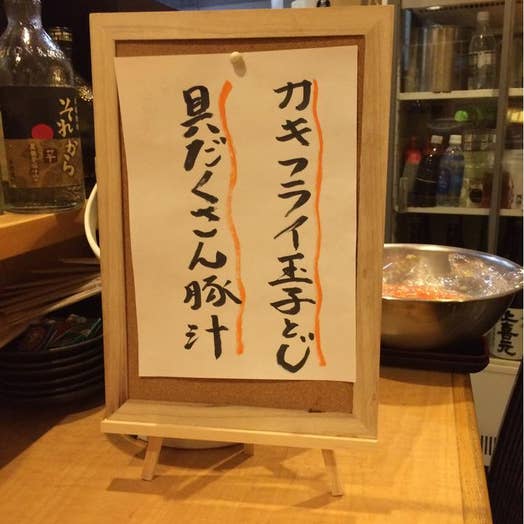 カキフライ玉子とじ
具だくさん豚汁
それから
上喜元